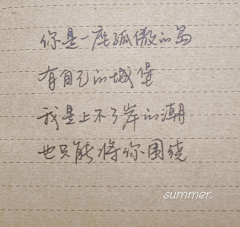 你是一座孤傲的岛
有自己的城堡
我是上不了岸的潮
也只能将你围绕
summer.